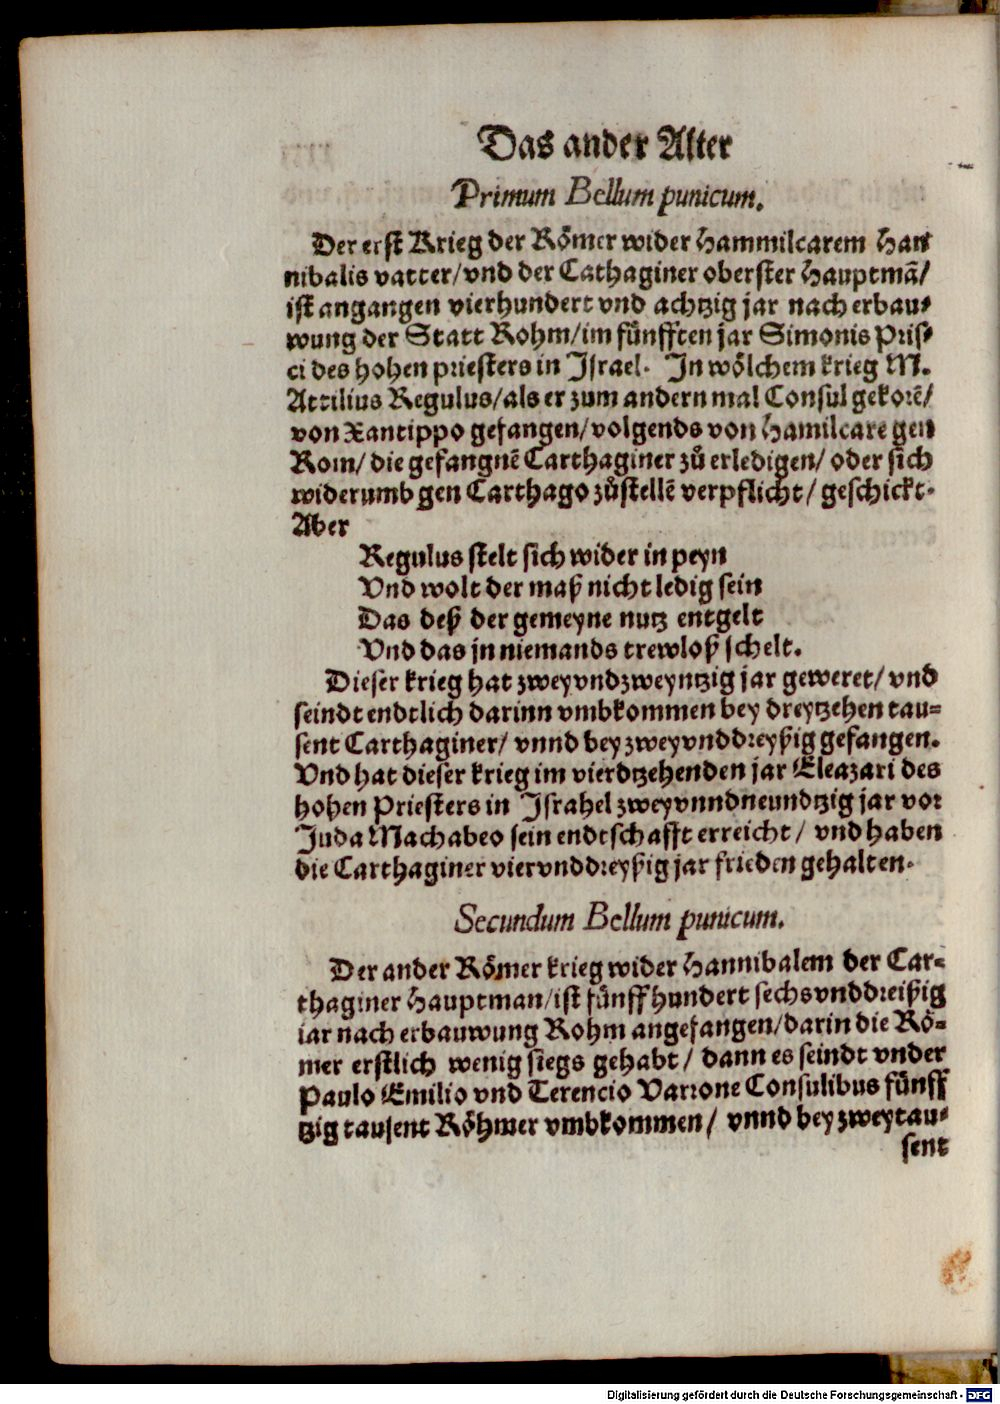 Das ander Alter
Primum Bellum punicum.
Der erst Krieg der Römer wider Hammilcarem Han
nibalis vatter/vnd der Cathaginer oberster Hauptmã/
ist angangen vierhundert vnd achtzig jar nach erbau⸗
wung der Statt Rohm/im fünfften jar Simonis Pris⸗
ci des hohen priesters in Israel. In wölchem krieg M.
Attilius Regulus/als er zum andern mal Consul gekorẽ/
von Xantippo gefangen/volgends von Hamilcare gen
Rom/ die gefangnẽ Carthaginer zů erledigen/ oder sich
widerumb gen Carthago zůstellẽ verpflicht/ geschickt.
Aber
Regulus stelt sich wider in peyn
Vnd wolt der maß nicht ledig sein
Das deß der gemeyne nutz entgelt
Vnd das jn niemands trewloß schelt.
Dieser krieg hat zweyvndzweyntzig jar geweret/ vnd
seindt endtlich darinn vmbkommen bey dreytzehen tau⸗
sent Carthaginer/ vnnd bey zweyvnddreyßig gefangen.
Vnd hat dieser krieg im vierdtzehenden jar Eleazari des
hohen Priesters in Israhel zweyvnndneundtzig jar vor
Juda Machabeo sein endtschafft erreicht/ vnd haben
die Carthaginer viervnddreyßig jar frieden gehalten.
Secundum Bellum punicum.
Der ander Römer krieg wider Hannibalem der Car⸗
thaginer Hauptman/ist fünffhundert sechsvnddreißig
iar nach erbauwung Rohm angefangen/darin die Rö⸗
mer erstlich wenig siegs gehabt/ dann es seindt vnder
Paulo Emilio vnd Terencio Varrone Consulibus fünff
tzig tausent Röhmer vmbkommen/ vnnd bey zweytau⸗
sent
Digitalisierung gefördert durch die Deutsche Forschungsgemeinschaft - DFG